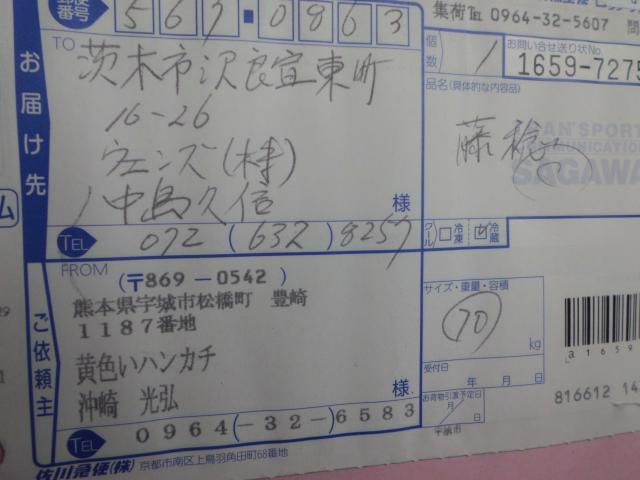 郵便番号 567-0863
集荷TEL 0964-32-5607
お届け先
TO 茨木市沢良宜東町
16-26
ウエンズ(株)
中島久信
様
TEL 072 (632) 8257
個数 1
お問い合せ送り状No.
1659-7275
品名(具体的な内容品)
SAGAWA
クール 冷凍 冷蔵
ご依頼主
FROM
(〒869-0542)
熊本県宇城市松橋町 豊崎
1187番地
黄色いハンカチ
沖崎 光弘
様
TEL 0964(-32-6583
サイズ・重量・容積
70
kg
受付日
年 月 日
お荷物引渡予定日
月 日
午前中
a1659
816612 14
佐川急便(株) 京都市南区上鳥羽角田町68番地